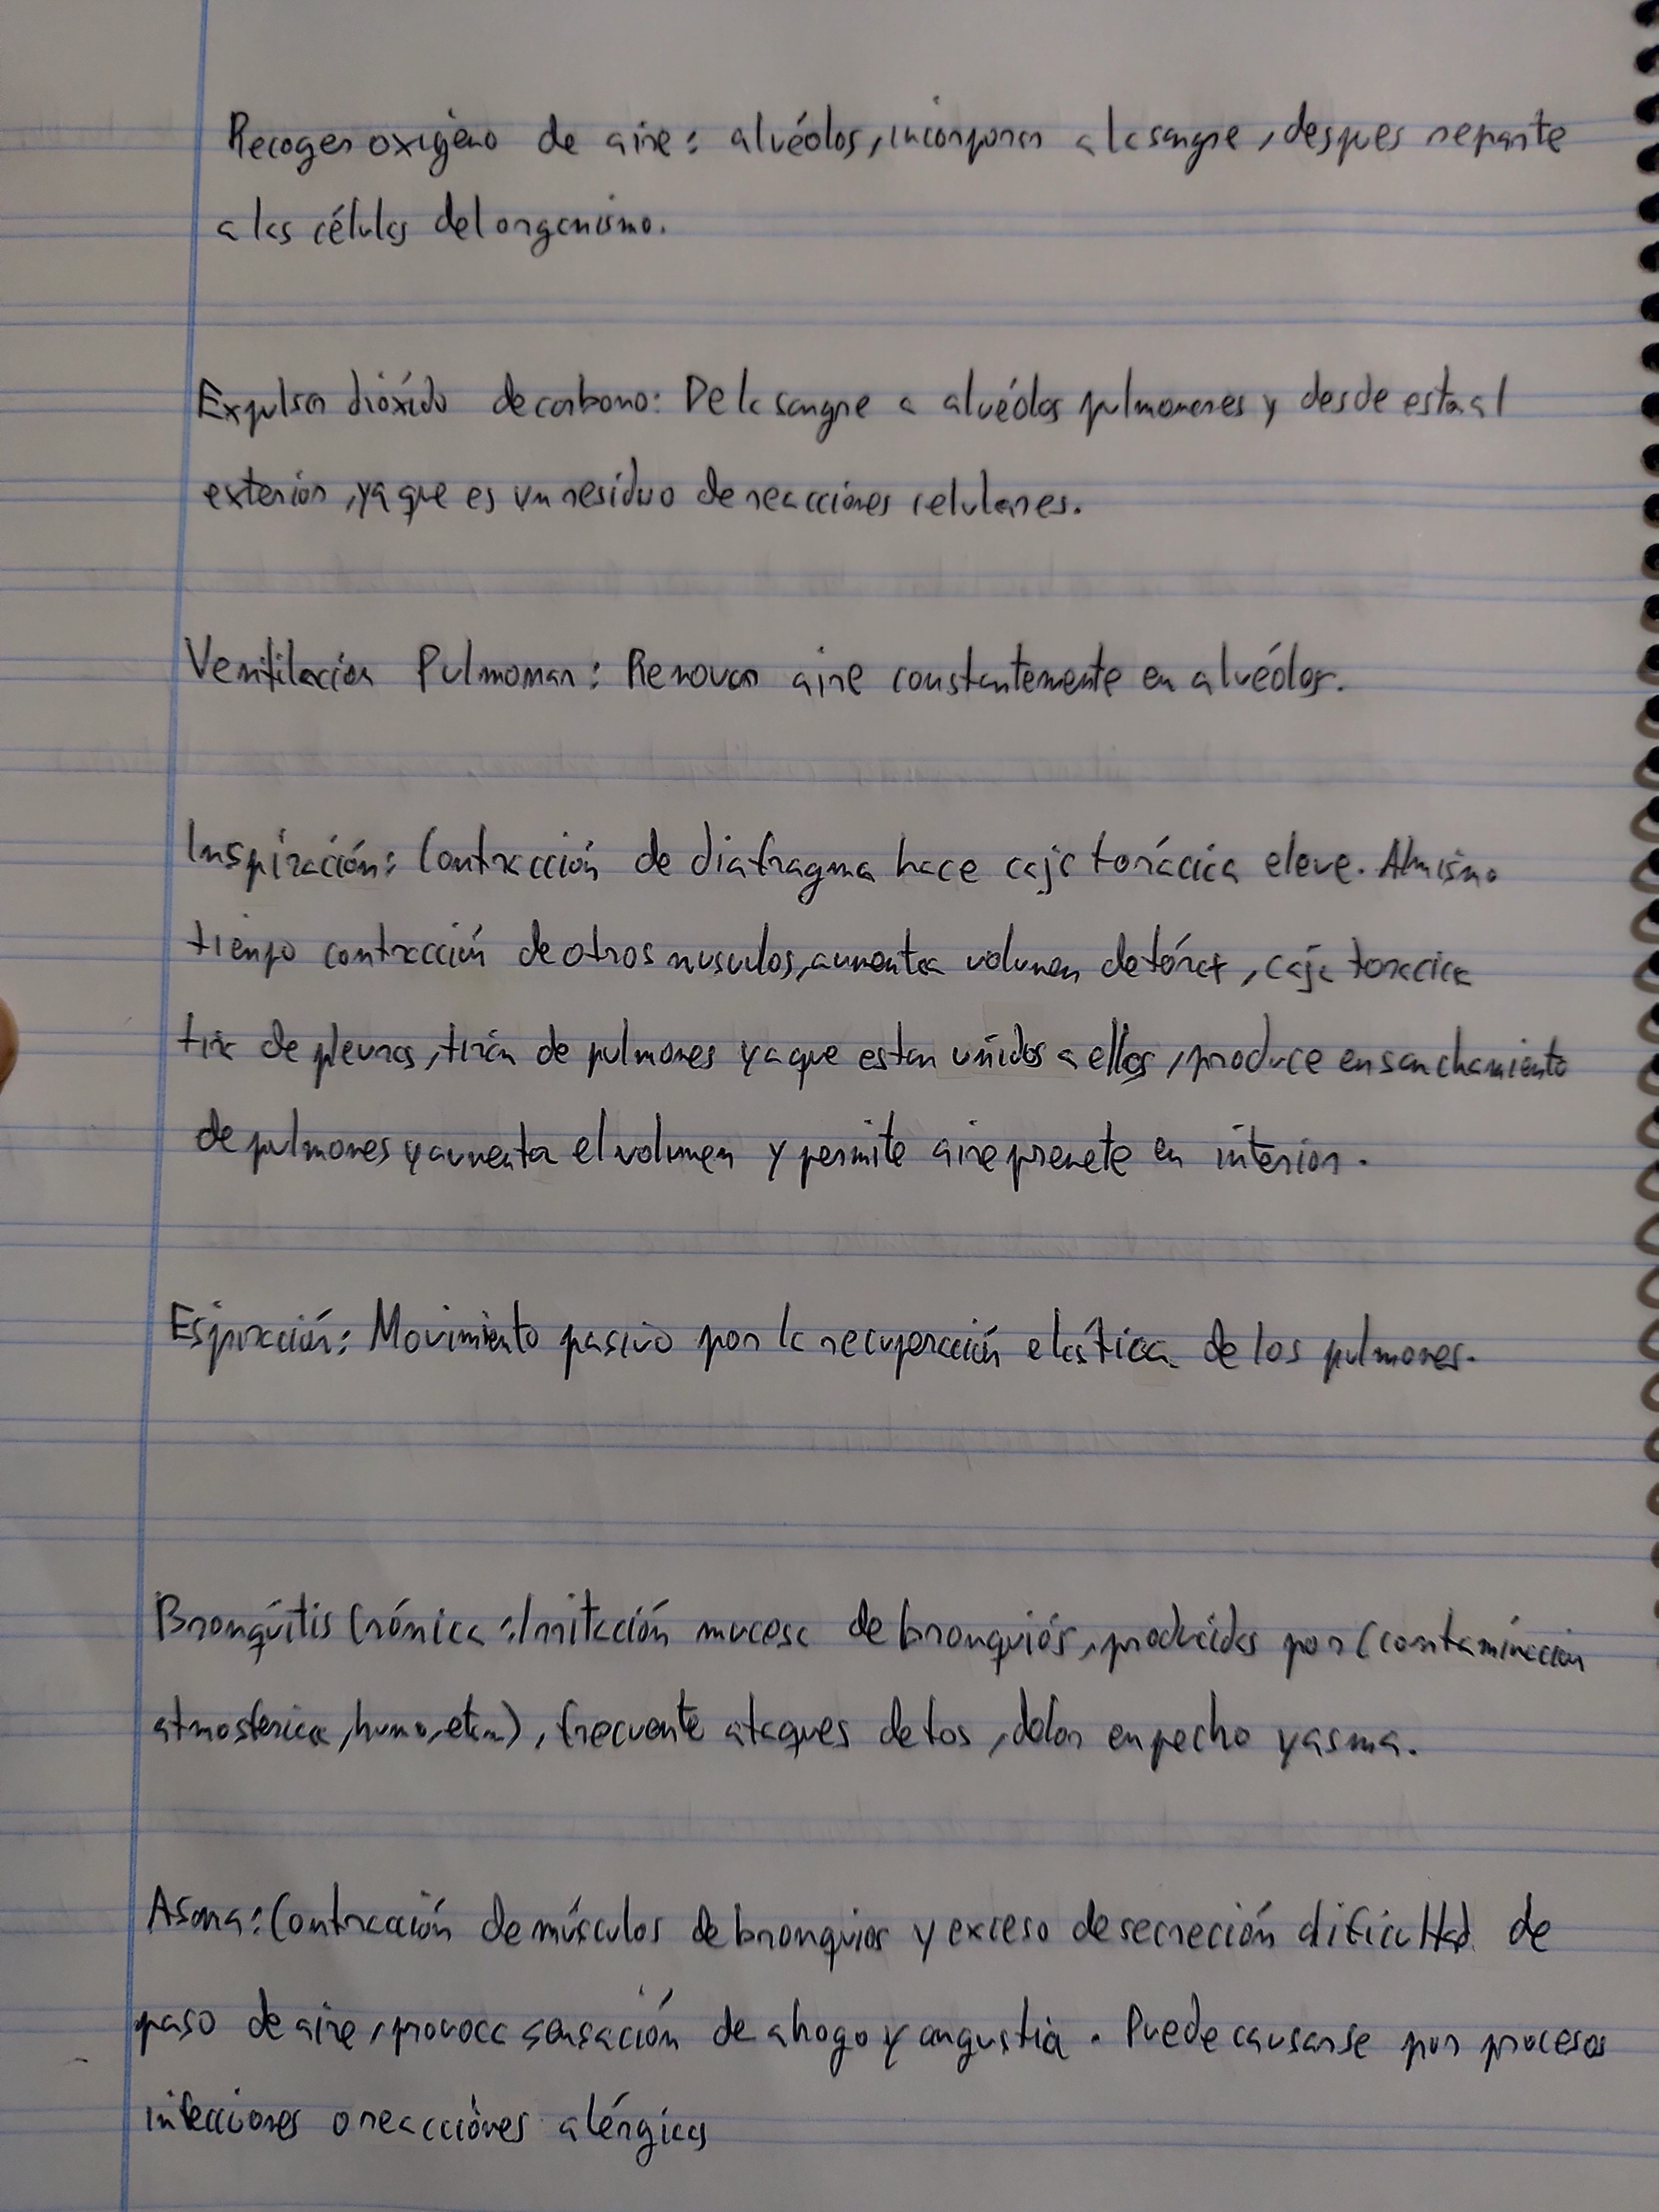 Recoger oxígeno de aire: alvéolos, incorporar a la sangre, despues reparte
a las células del organismo.
Expulsar dióxido de carbono: De la sangre a alvéolos pulmonares y desde esta al
exterior, ya que es un residuo de reacciones celulares.
Ventilación Pulmonar: Renovar aire constantemente en alvéolos.
Inspiración: Contracción de diafragma hace caja torácica eleve. Al mismo
tiempo contracción de otros musculos, aumenta volumen de tórax, caja toracica
tira de pleuras, tiran de pulmones ya que estan unidos a ellos, produce ensanchamiento
de pulmones y aumenta el volumen y permite aire prenete en interior.
Espiración: Movimiento pasivo por la recuperación elástica de los pulmones.
Bronquitis Crónica: Irritación mucosa de bronquios, producidas por (contaminación
atmosferica, humo, etc...), frecuente ataques de tos, dolor en pecho y asma.
Asma: Contracción de músculos de bronquios y exceso de secreción dificultad de
paso de aire, provoca sensación de ahogo y angustia. Puede causarse por procesos
infecciones o reacciones alérgicas